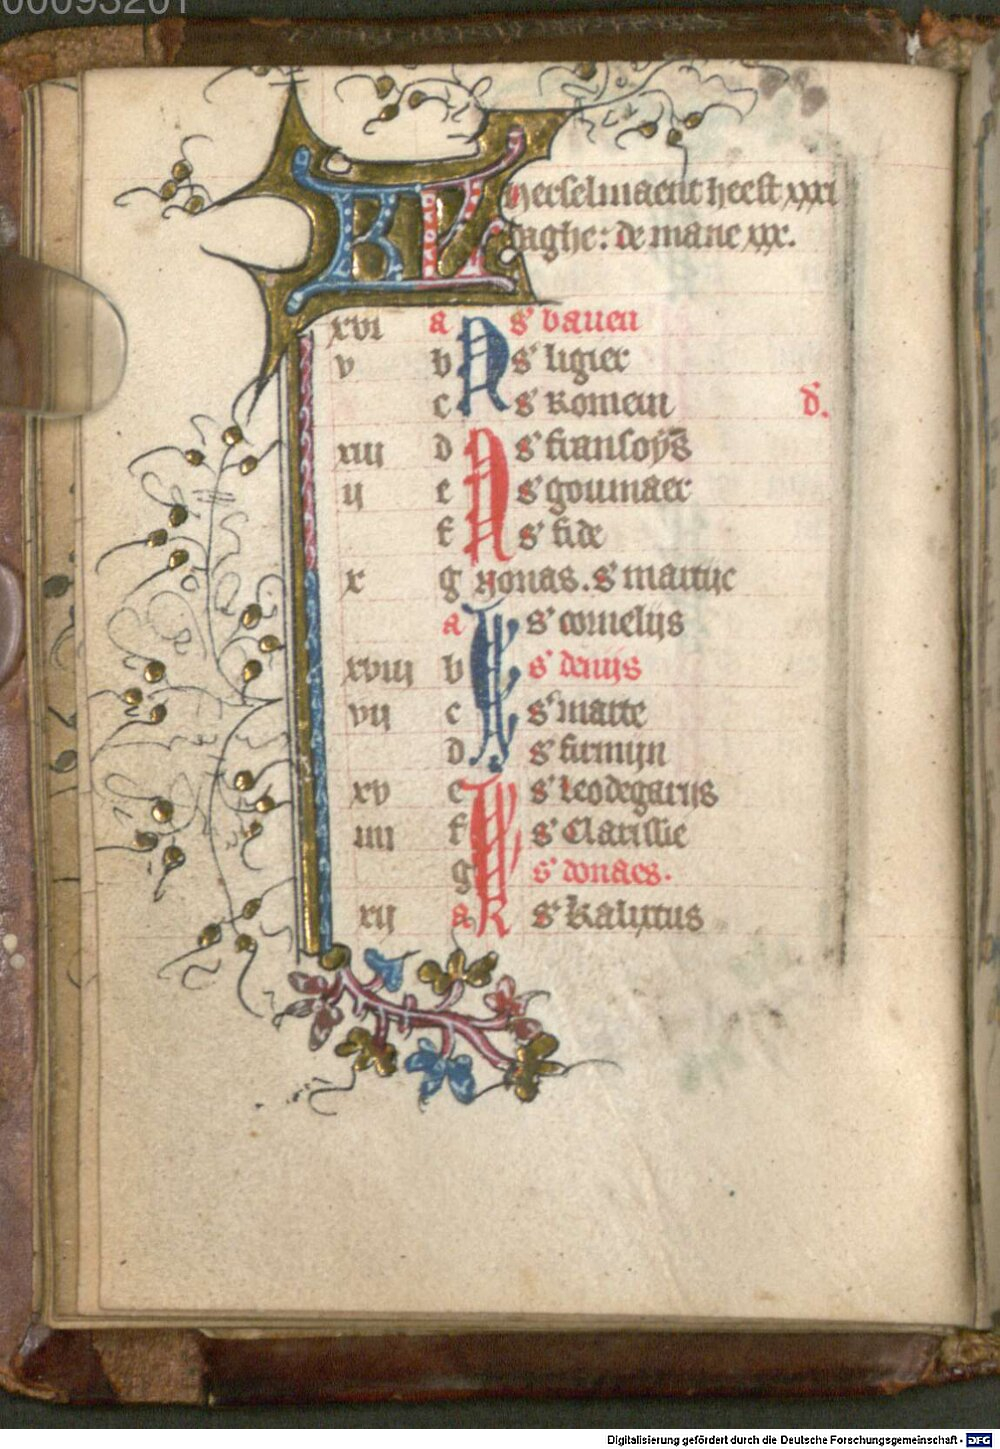 00093201
KL herselmaent heeft xxxi
daghe: de mane xxx.
xvi a s' bauen
v b N s' ligier
c s' Romein d.
xiii d N s' fransoys
ij e s' goumaer
f s' fide
x g Nonas. s' martijc
a s' cornelijs
xviii b s' denijs
vij c s' marte
d s' firmijn
xv e s' Leodegarijs
iiii f s' Clarissie
g s' donaes.
xij a s' kalixtus
Digitalisierung gefördert durch die Deutsche Forschungsgemeinschaft - DFG